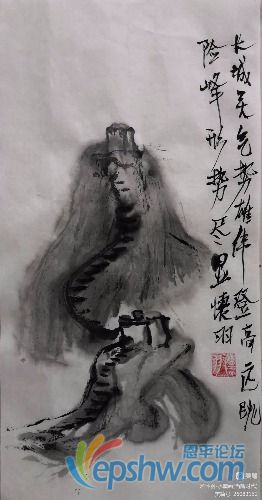 长城气势雄伟登高远眺
险峰形势尽显怀羽
恩平论坛
epshw.com